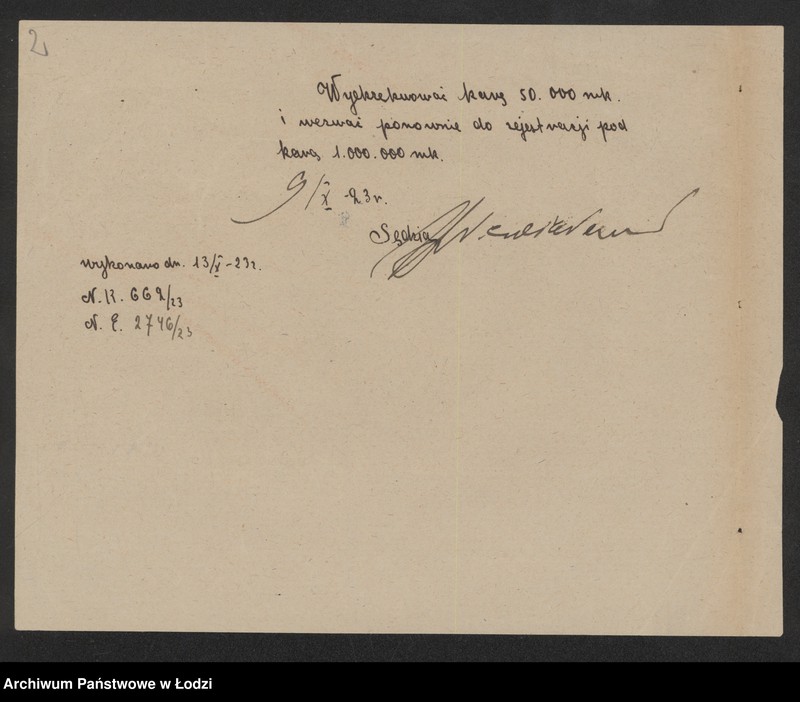 2
Wyekzekwować karę 50.000 mk.
i wezwać ponownie do rejestracji pod
karą 1.000.000 mk.
9/X -23r.
Sędzia
wykonano dn. 13/X -23r.
N. R. 662/23
N. E. 2746/23
Archiwum Państwowe w Łodzi